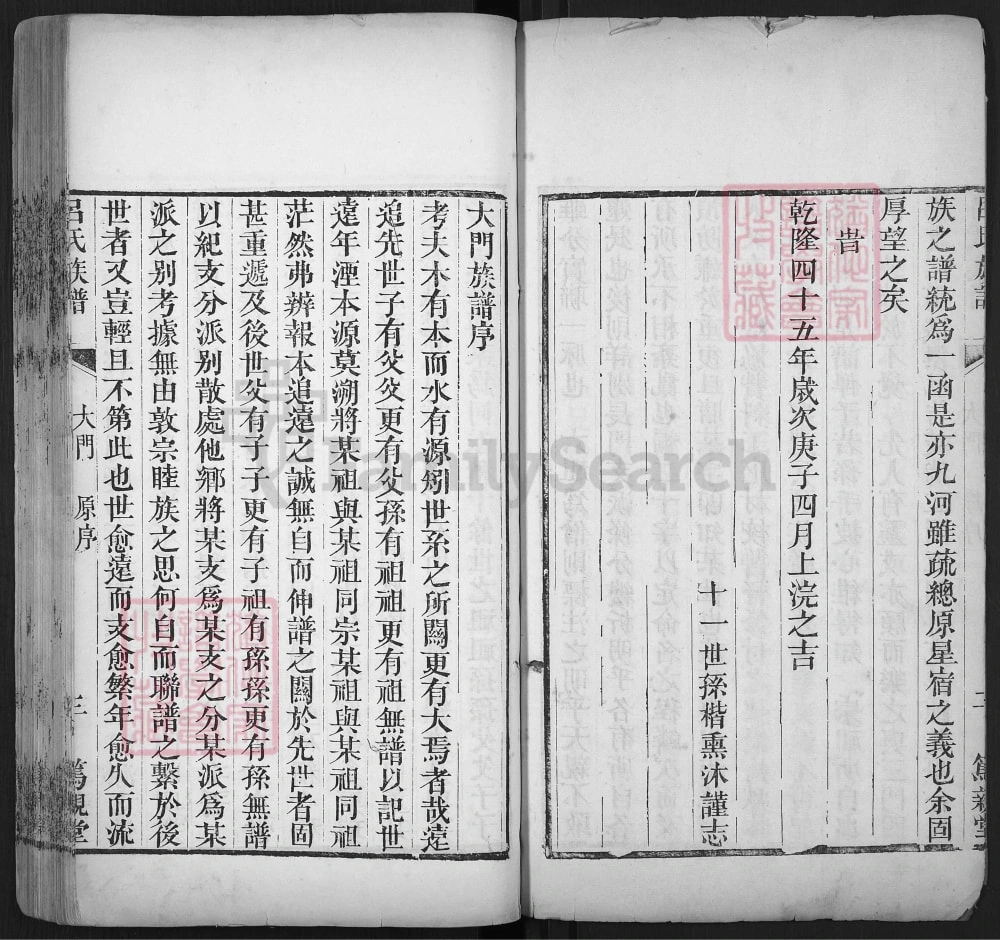 族之譜統為一函是亦九河雖疏總原星宿之義也余固
厚望之矣
旹
乾隆四十五年歲次庚子四月上浣之吉
十一世孫楷熏沐謹志
大門族譜序
考夫木有本而水有源矧世系之所關更有大焉者哉遠
追先世子有父父更有父孫有祖祖更有祖無譜以記世
遠年湮本源莫溯將某祖與某祖同宗某祖與某祖同祖
茫然弗辨報本追遠之誠無自而伸譜之關於先世者固
甚重遞及後世父有子子更有子祖有孫孫更有孫無譜
以紀支分派别散處他鄉將某支爲某支之分某派爲某
派之别考據無由敦宗睦族之思何自而聯譜之繫於後
世者又豈輕且不第此也世愈遠而支愈繁年愈久而流
呂氏族譜
大門 原序
三 篤親堂
FamilySearch